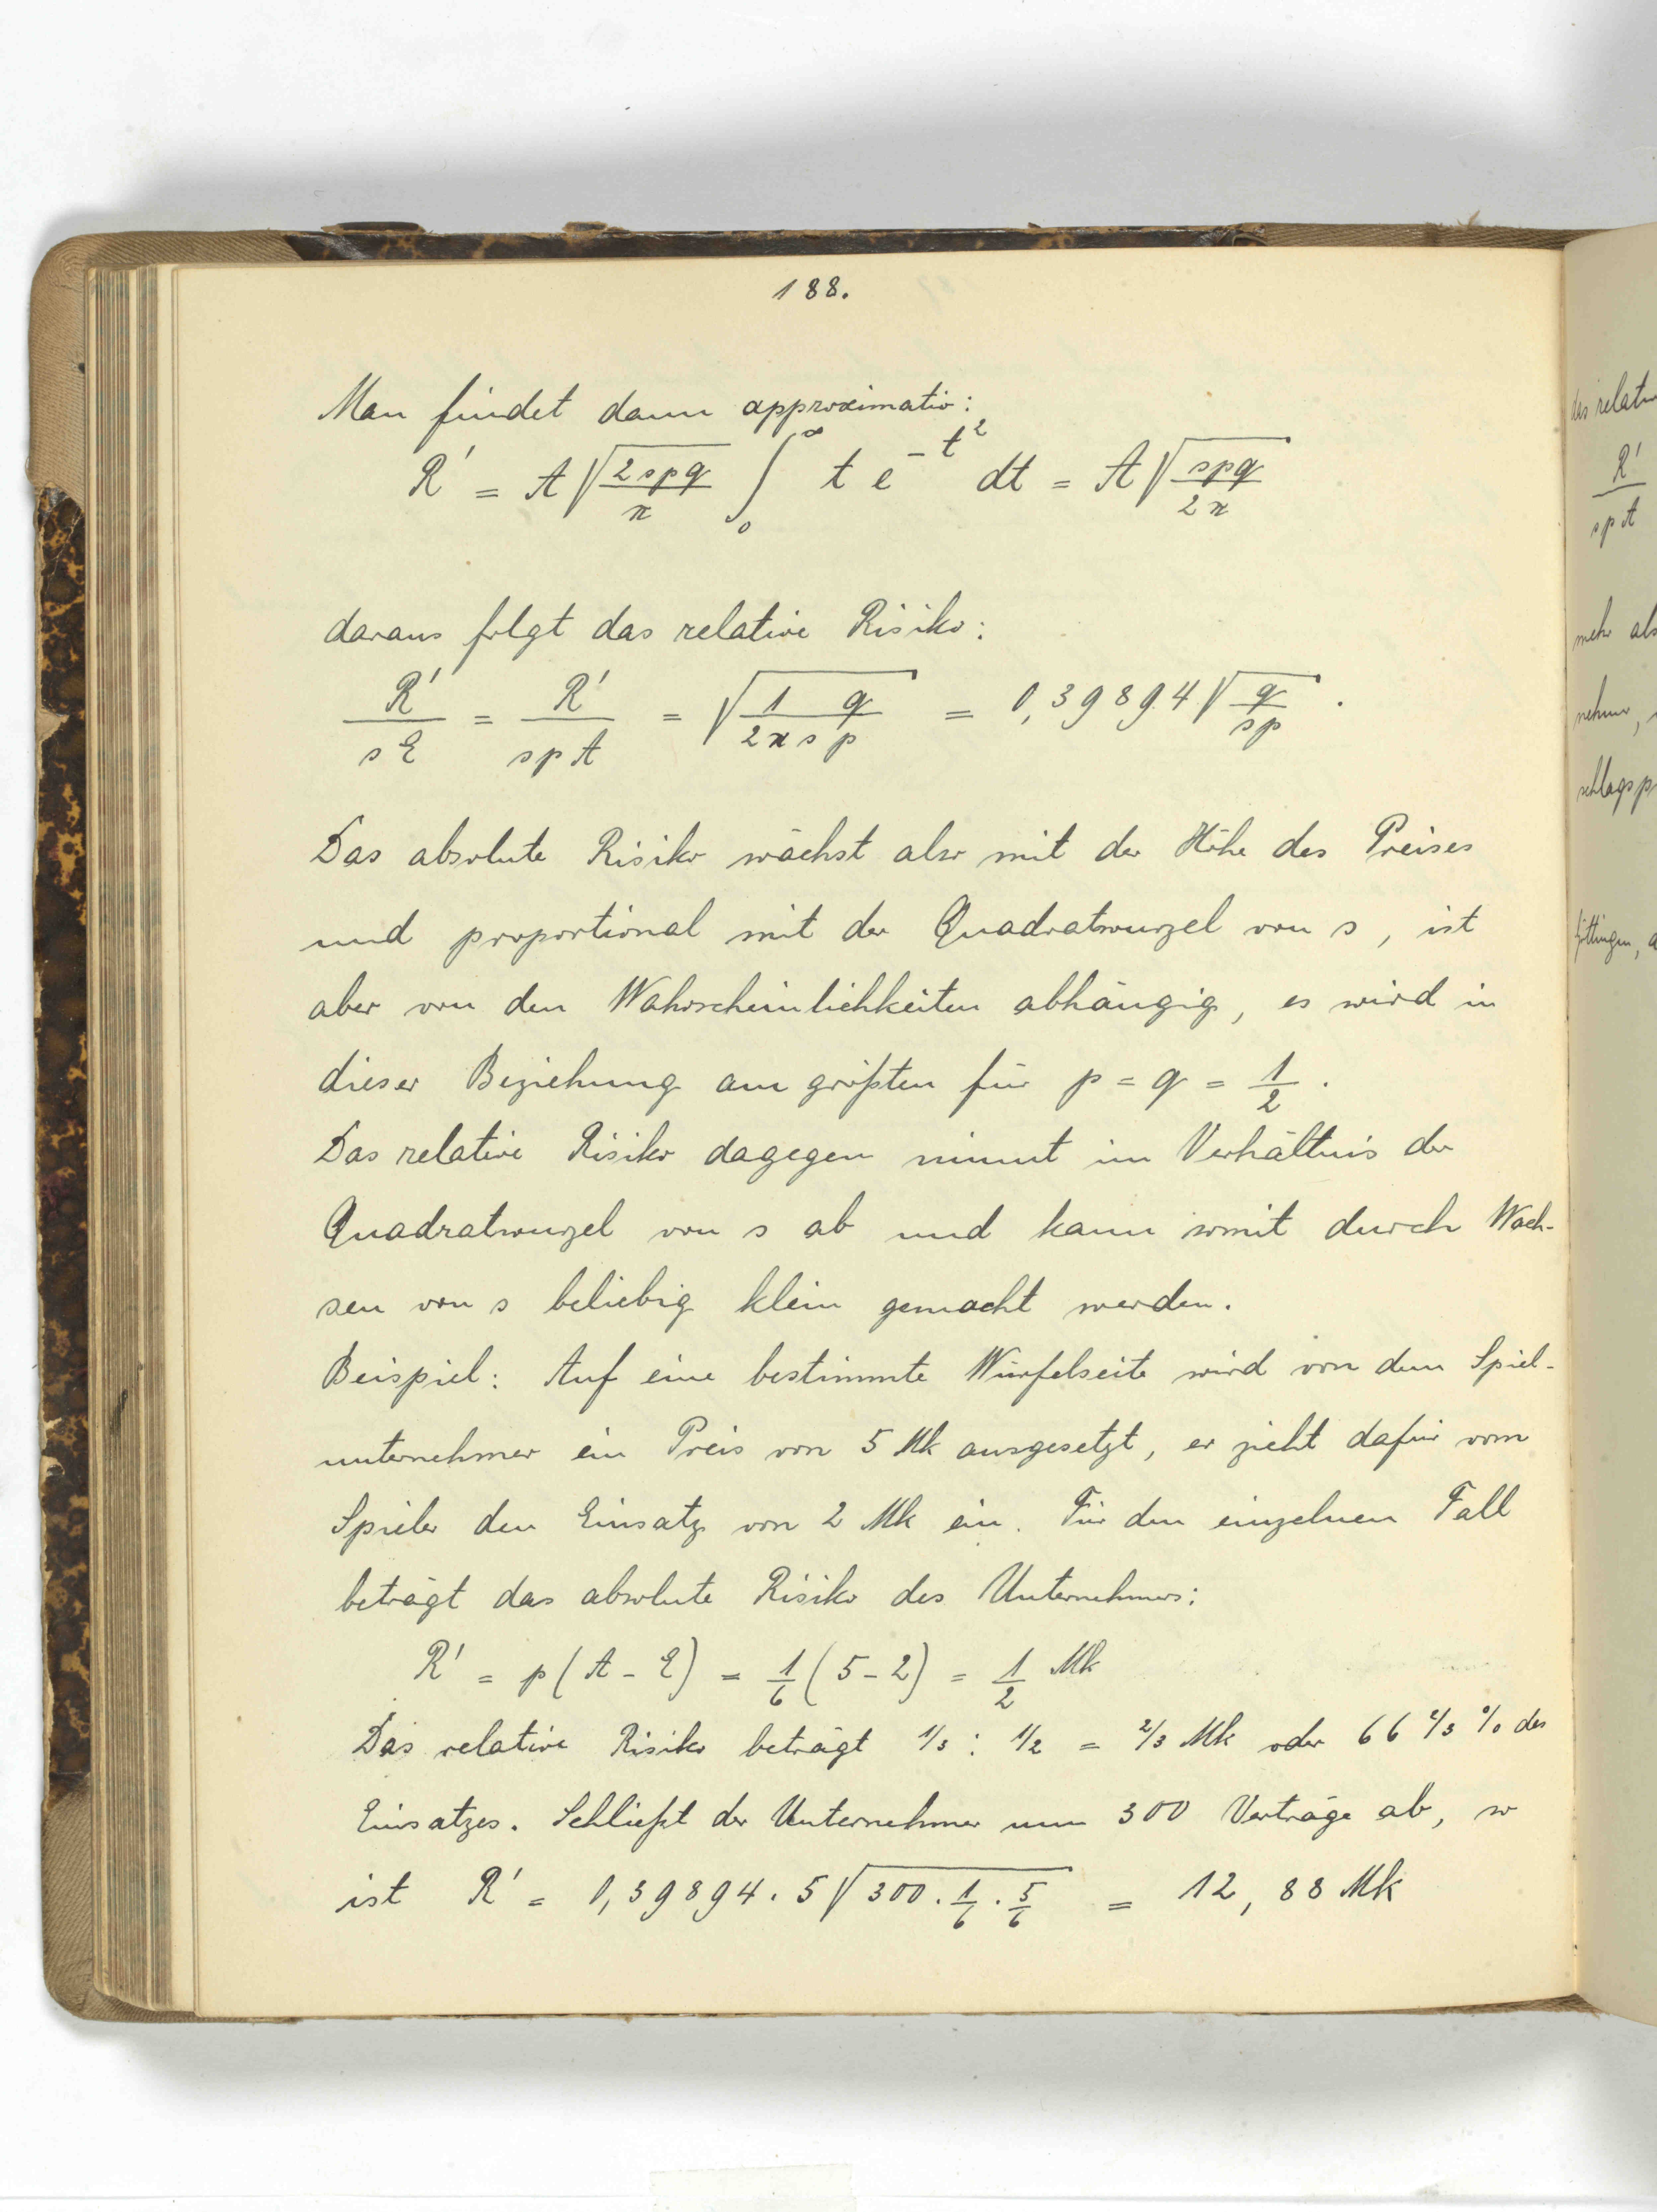 188.
Man findet dann approximativ:
R' = A √(2spq/π) ∫₀^∞ t e^(-t²) dt = A √(spq/2π)
daraus folgt das relative Risiko:
R'/sE = R'/spA = √(1 q/2π s p) = 0,39894 √(q/sp) .
Das absolute Risiko wächst also mit der Höhe des Preises
und proportional mit der Quadratwurzel von s, ist
aber von den Wahrscheinlichkeiten abhängig, es wird in
dieser Beziehung am größten für p = q = 1/2 .
Das relative Risiko dagegen nimmt im Verhältnis der
Quadratwurzel von s ab und kann somit durch Wach-
sen von s beliebig klein gemacht werden.
Beispiel: Auf eine bestimmte Würfelseite wird von dem Spiel-
unternehmer ein Preis von 5 Mk ausgesetzt, er zieht dafür vom
Spieler den Einsatz von 2 Mk ein. Für den einzelnen Fall
beträgt das absolute Risiko des Unternehmers:
R' = p(A - E) = 1/6 (5 - 2) = 1/2 Mk
Das relative Risiko beträgt 1/3 : 1/2 = 2/3 Mk oder 66 2/3 % des
Einsatzes. Schließt der Unternehmer nun 300 Verträge ab, so
ist R' = 0,39894 . 5 √(300 . 1/6 . 5/6) = 12,88 Mk
das relativ
R'/spA
mehr als
nehmer,
schlagsp
Göttingen,